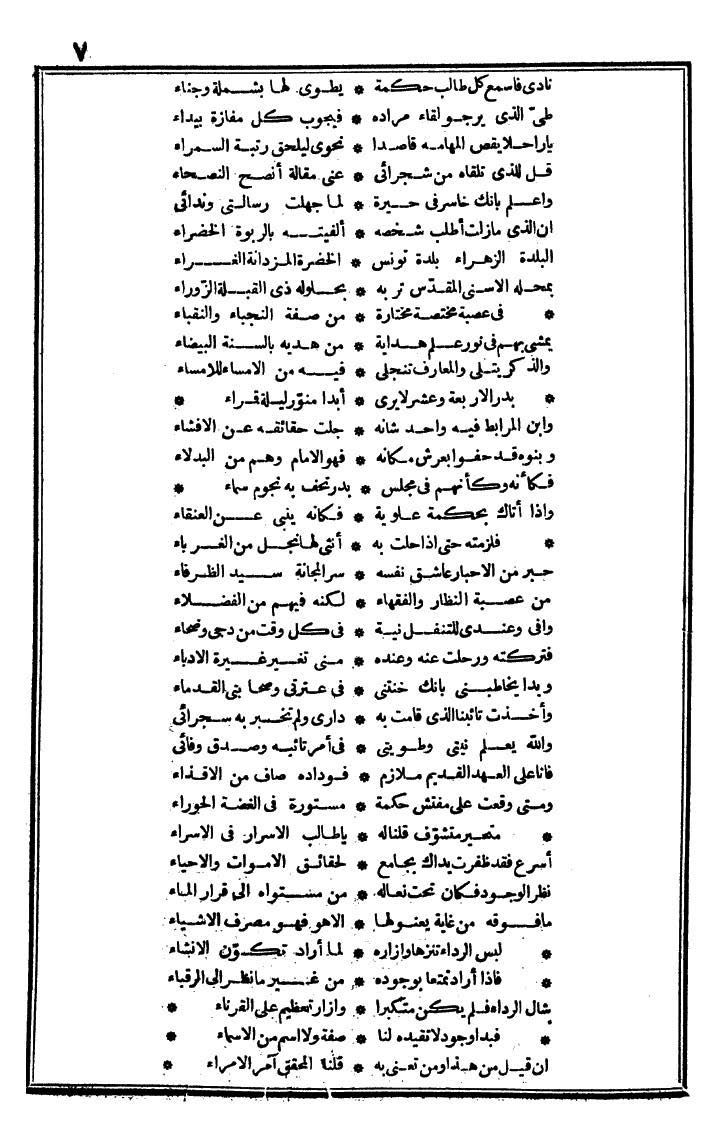 ٧
نادى فاسمع كل طالب حكمة * يطوى لها بشملة وجناء
طىّ الذى يرجو لقاء مراده * فيجوب كل مفازة بيداء
ياراحلا يقص المهامه قاصدا * نحوى ليلحق رتبة السمراء
قل للذى تلقاه من شجرائى * عنى مقالة أنصح النصحاء
واعلم بانك خاسر فى حيرة * لما جهلت رسالتى وندائى
ان الذى مازلت أطلب شخصه * ألفيته بالربوة الخضراء
البلدة الزهراء بلدة تونس * الخضرة المزدانة الغراء
بمحله الاسنى المقدّس تربه * بحلوله ذى القبلة الزوراء
* فى عصبة مختصة مختارة * من صفة النجباء والنقباء
يمشى بهم فى نور علم هداية * من هديه بالسنة البيضاء
والذكر يتلى والمعارف تنجلى * فيه من الامساء للامساء
* بدر الاربعة وعشر لايرى * أبدا منوّر ليلة قراء *
وابن المرابط فيه واحد شانه * جلت حقائقه عن الافشاء
وبنوه قد حفوا بعرش مكانه * فهو الامام وهم من البدلاء
فكأنه وكأنهم فى مجلس * بدر تحف به نجوم سماء *
واذا أتاك بحكمة علوية * فكانه ينبى عن العنقاء
* فلزمته حتى اذا حلت به * أنثى لها نجل من الغرباء
حبر من الاحبار عاشق نفسه * سر المجانة سيد الظرفاء
من عصبة النظار والفقهاء * لكنه فيهم من الفضلاء
وافى وعندى للتنفل نية * فى كل وقت من دجى وضحاء
فتركته ورحلت عنه وعنده * منى تغير غيرة الادباء
وبدا يخاطبنى بانك خنتنى * فى عترتى وصحابتى القدماء
وأخذت تائبنا الذى قامت به * دارى ولم تخبر به سجرائى
والله يعلم نيتى وطويتى * فى أمر تائبه وصدق وفائى
فانا على العهد القديم ملازم * فوداده صاف من الاقذاء
ومتى وقعت على مفتش حكمة * مستورة فى الغضة الحوراء
* متحير متشوّف قلنا له * ياطالب الاسرار فى الاسراء
أسرع فقد ظفرت يداك بجامع * لحقائق الاموات والاحياء
نظر الوجود فكان تحت نعاله * من مستواه الى قرار الماء
مافوقه من غاية يعنو لها * الا هو فهو مصرف الاشياء
* لبس الرداء تنزها وازاره * لما أراد تكوّن الانشاء
* فاذا أراد تمتعا بوجوده * من غير مانظر الى الرقباء
شال الرداء فلم يكن متكبرا * وازار تعظيم على القرناء *
* فبدا وجود لاتقيده لنا * صفة ولا اسم من الاسماء *
ان قيل من هذا ومن تعنى به * قلنا المحقق آمر الامراء *